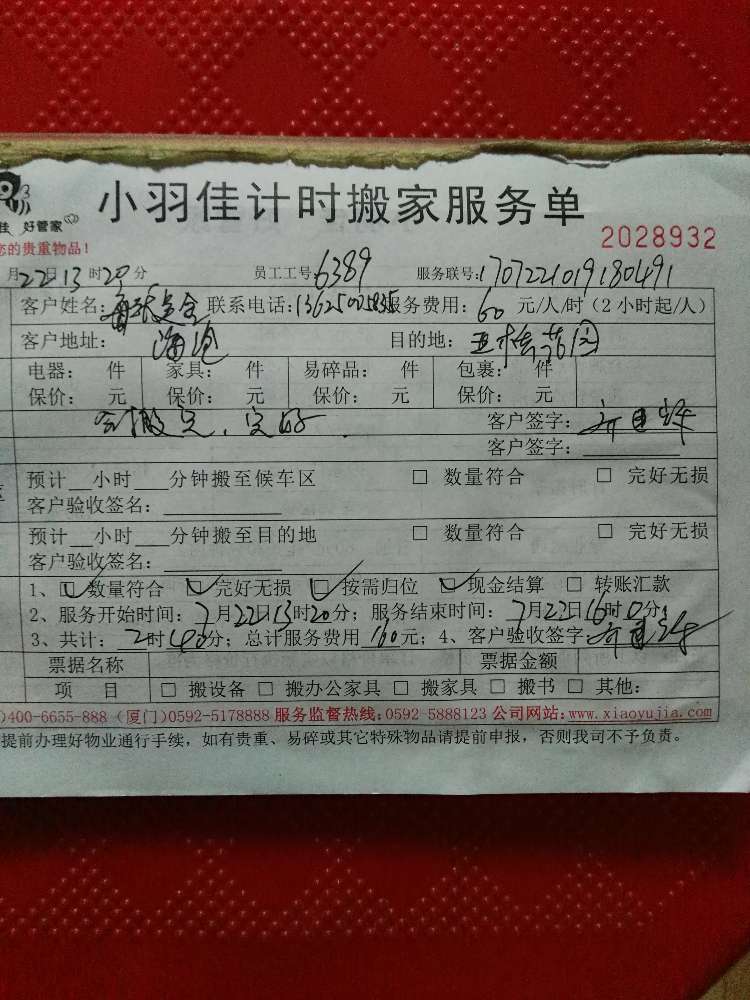 小羽佳计时搬家服务单
佳 好管家
您的贵重物品！ 2028932
月22日13时20分 员工工号：6389 服务联号：1707221019180491
客户姓名： 联系电话：13625005835 服务费用：60元/人/时（2小时起/人）
客户地址：海沧 目的地：
电器： 件 家具： 件 易碎品： 件 包裹： 件
保价： 元 保价： 元 保价： 元 保价： 元
搬完、完好 客户签字：
客户签字：
预计__小时___分钟搬至候车区 □ 数量符合 □ 完好无损
客户验收签名：
预计__小时___分钟搬至目的地 □ 数量符合 □ 完好无损
客户验收签名：
1、☑数量符合 ☑完好无损 ☑按需归位 ☑现金结算 □ 转账汇款
2、服务开始时间：7月22日13时20分；服务结束时间：7月22日16时0分；
3、共计：2时40分；总计服务费用160元；4、客户验收签字：
票据名称 票据金额
项 目 □ 搬设备 □ 搬办公家具 □ 搬家具 □ 搬书 □ 其他：
)400-6655-888（厦门）0592-5178888 服务监督热线：0592-5888123 公司网站：www.xiaoyujia.com
提前办理好物业通行手续，如有贵重、易碎或其它特殊物品请提前申报，否则我司不予负责。